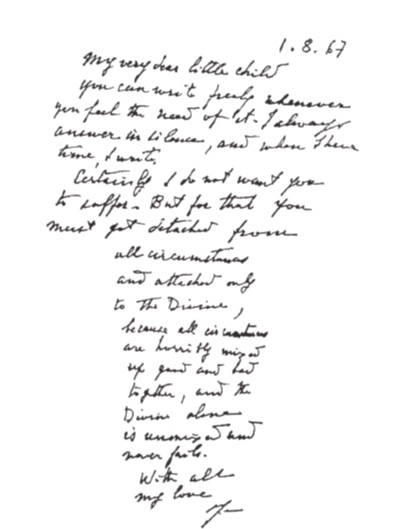 1. 8. 67
My very dear little child
you can write freely whenever
you feel the need of it. I always
answer in silence, and when I have
time, I write.
Certainly I do not want you
to suffer. But for that you
must get detached from
all circumstances
and attached only
to the Divine,
because all circumstances
are horribly mixed
up good and bad
together, and the
Divine alone
is unmixed and
never fails.
With all
my love